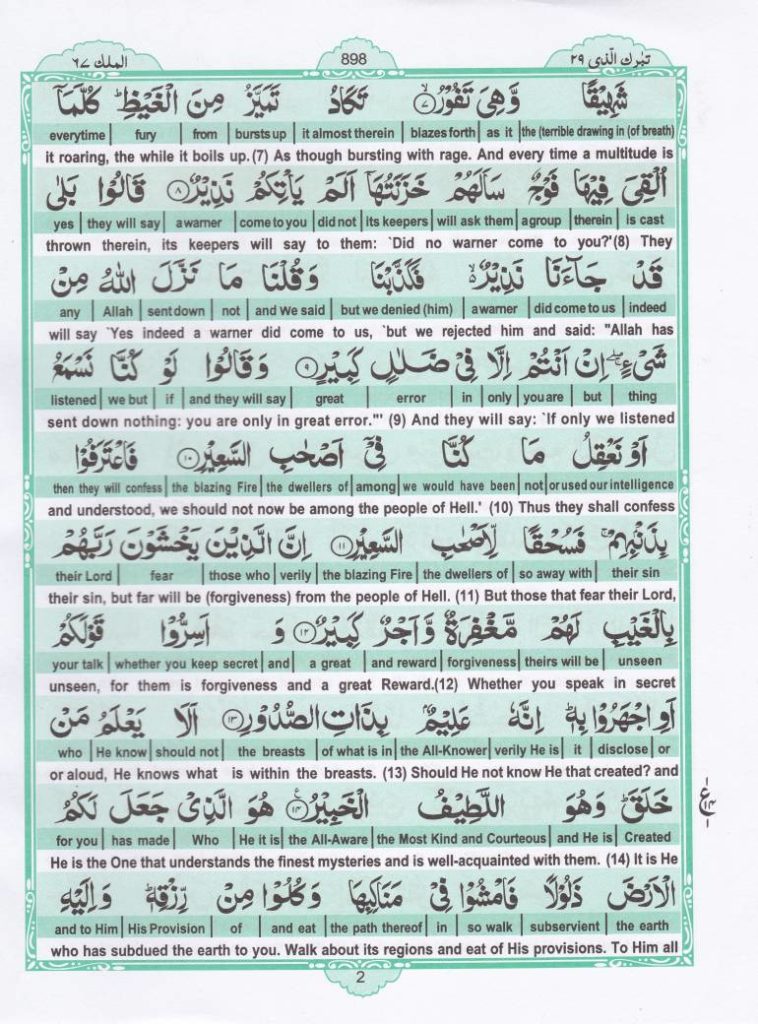 الملك ٦٧ 898 تبٰرك الّذی ٢٩
شَهِيْقًا وَّهِىَ تَفُوْرُ ۙ‏﴿۷﴾ تَكَادُ تَمَيَّزُ مِنَ الْغَيْظِ ؕ كُلَّمَاۤ
everytime | fury | from | bursts up | it almost therein | blazes forth | as it | the (terrible drawing in (of breath)
it roaring, the while it boils up.(7) As though bursting with rage. And every time a multitude is
اُلْقِىَ فِيْهَا فَوْجٌ سَاَلَهُمْ خَزَنَتُهَاۤ اَلَمْ يَاْتِكُمْ نَذِيْرٌ ‏﴿۸﴾ قَالُوْا بَلٰى
yes | they will say | a warner | come to you | did not | its keepers | will ask them | a group | therein | is cast
thrown therein, its keepers will say to them: `Did no warner come to you?'(8) They
قَدْ جَآءَنَا نَذِيْرٌ ۙ فَكَذَّبْنَا وَقُلْنَا مَا نَزَّلَ اللّٰهُ مِنْ
any | Allah | sent down | not | and We said | but we denied (him) | a warner | did come to us | indeed
will say `Yes indeed a warner did come to us, `but we rejected him and said: "Allah has
شَىْءٍ ۖۚ اِنْ اَنْتُمْ اِلَّا فِىْ ضَلٰلٍ كَبِيْرٍ‏﴿۹﴾ وَقَالُوْا لَوْ كُنَّا نَسْمَعُ
listened | we but | if | and they will say | great | error | in | only | you are | but | thing
sent down nothing: you are only in great error."' (9) And they will say: `If only we listened
اَوْ نَعْقِلُ مَا كُنَّا فِىْۤ اَصْحٰبِ السَّعِيْرِ‏﴿۱۰﴾ فَاعْتَرَفُوْا
then they will confess | the blazing Fire | the dwellers of | among | we would have been | not | or used our intelligence
and understood, we should not now be among the people of Hell.' (10) Thus they shall confess
بِذَنْۢبِهِمْ ۚ فَسُحْقًا لِّاَصْحٰبِ السَّعِيْرِ‏﴿۱۱﴾ اِنَّ الَّذِيْنَ يَخْشَوْنَ رَبَّهُمْ
their Lord | fear | those who | verily | the blazing Fire | the dwellers of | so away with | their sin
their sin, but far will be (forgiveness) from the people of Hell. (11) But those that fear their Lord,
بِالْغَيْبِ لَهُمْ مَّغْفِرَةٌ وَّاَجْرٌ كَبِيْرٌ‏﴿۱۲﴾ وَ اَسِرُّوْا قَوْلَكُمْ
your talk | whether you keep secret | and | a great | and reward | forgiveness | theirs will be | unseen
unseen, for them is forgiveness and a great Reward.(12) Whether you speak in secret
اَوِ اجْهَرُوْا بِهٖ ؕ اِنَّهٗ عَلِيْمٌۢ بِذَاتِ الصُّدُوْرِ‏﴿۱۳﴾ اَلَا يَعْلَمُ مَنْ
who | He know | should not | the breasts | of what is in | the All-Knower | verily He is | it | disclose | or
or aloud, He knows what is within the breasts. (13) Should He not know He that created? and
خَلَقَ ؕ وَهُوَ اللَّطِيْفُ الْخَبِيْرُ‏﴿۱۴﴾ هُوَ الَّذِىْ جَعَلَ لَكُمُ
for you | has made | Who | He it is | the All-Aware | the Most Kind and Courteous | and He is | Created
He is the One that understands the finest mysteries and is well-acquainted with them. (14) It is He
الْاَرْضَ ذَلُوْلًا فَامْشُوْا فِىْ مَنَاكِبِهَا وَكُلُوْا مِنْ رِّزْقِهٖ ؕ وَاِلَيْهِ
and to Him | His Provision | of | and eat | the path thereof | in | so walk | subservient | the earth
who has subdued the earth to you. Walk about its regions and eat of His provisions. To Him all
2